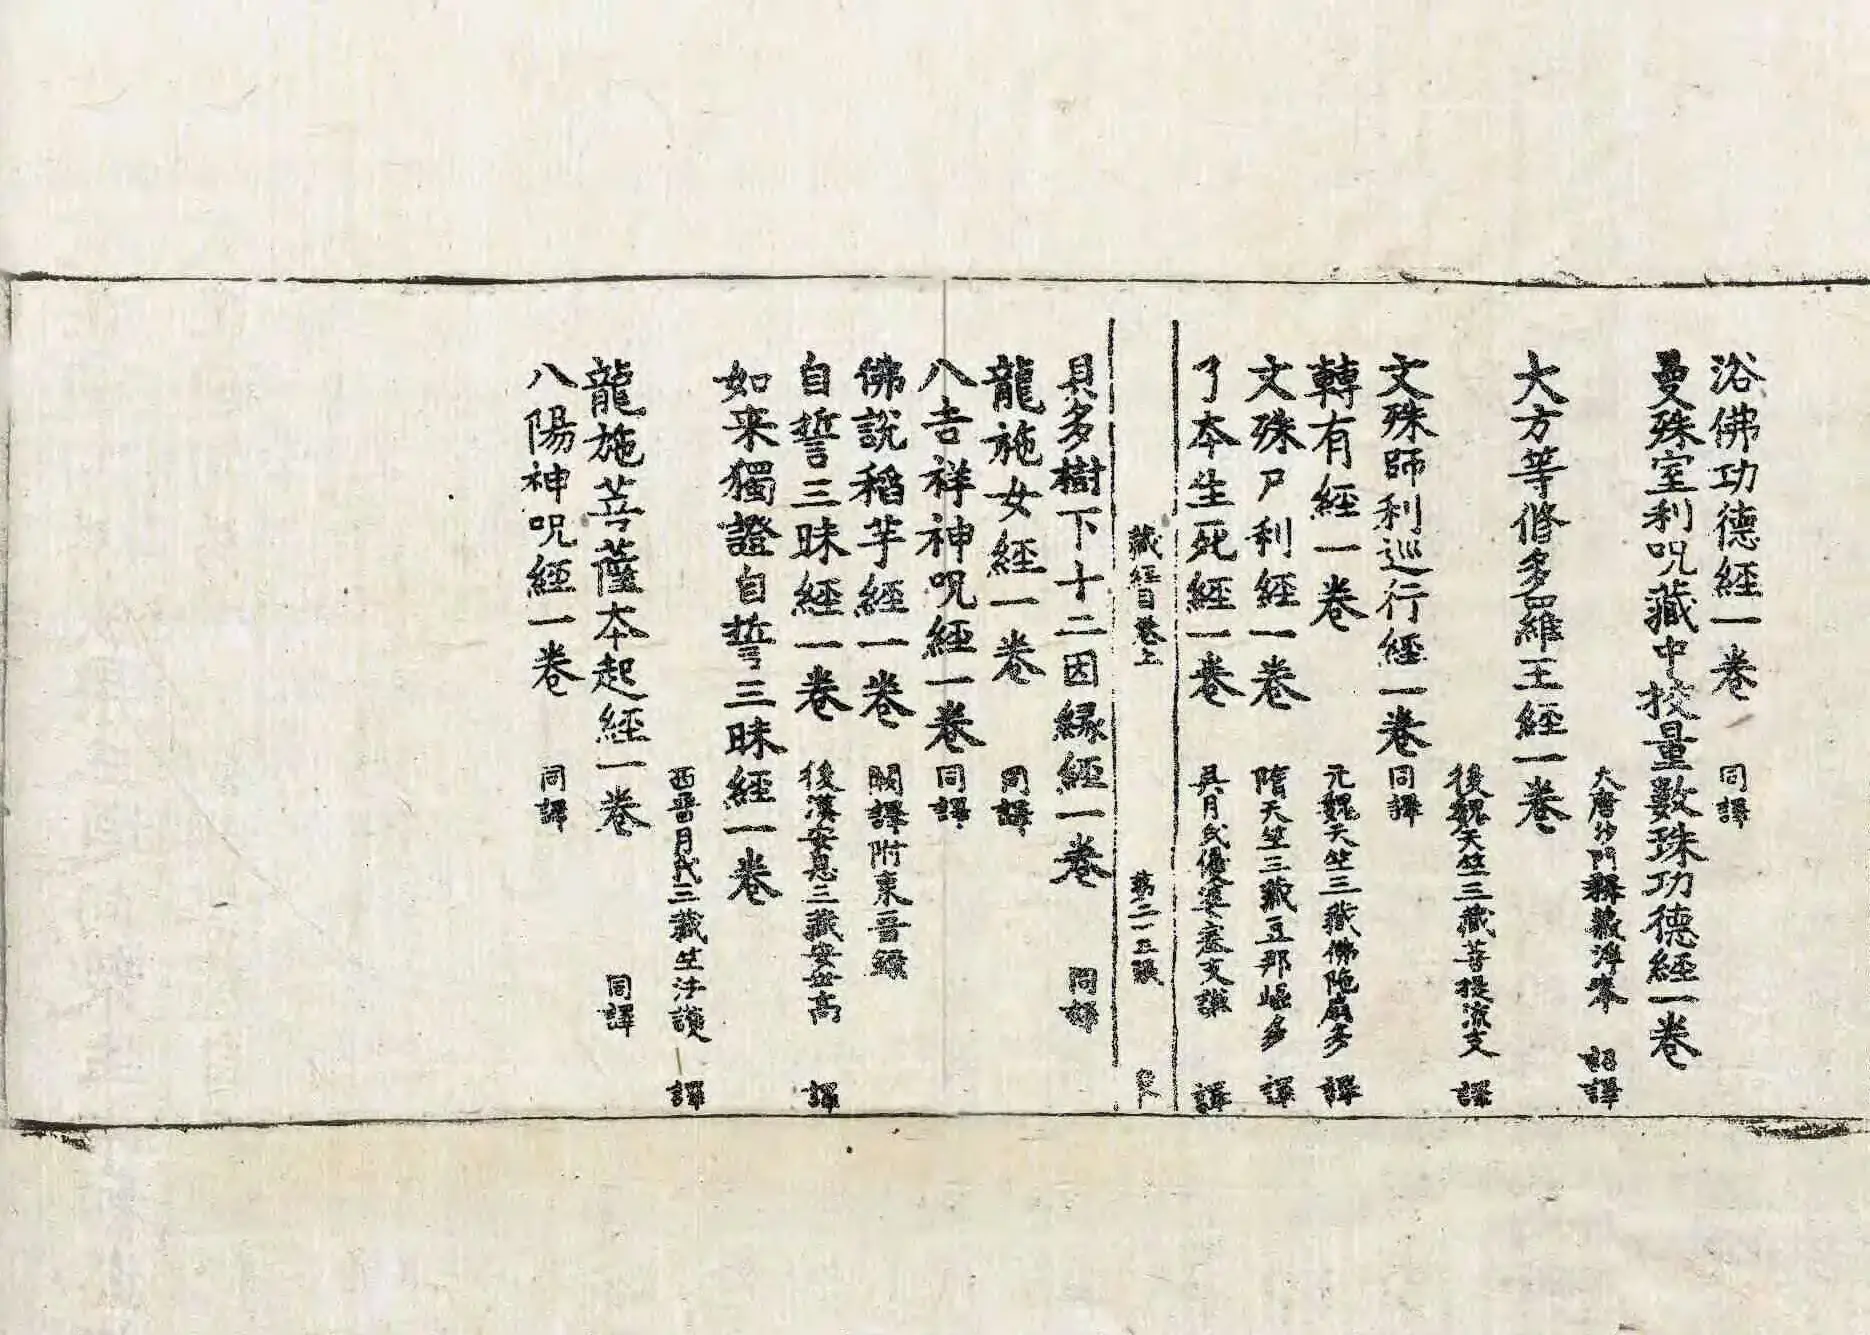 浴佛功德經一卷 同譯
曼殊室利呪藏中挍量數珠功德經一卷
大唐沙門釋義淨奉 詔譯
大方等脩多羅王經一卷
後魏天竺三藏菩提流支 譯
文殊師利巡行經一卷 同譯
轉有經一卷 元魏天竺三藏佛陁扇多 譯
文殊尸利經一卷 隋天竺三藏豆那崛多 譯
了夲生死經一卷 吳月氏優婆塞支謙 譯
藏經目卷上 第二十三張
貝多樹下十二因縁經一卷 同譯
龍施女經一卷 同譯
八吉祥神呪經一卷 同譯
佛說稻芉經一卷 闕譯附東晉錄
自誓三昧經一卷 後漢安息三藏安世高 譯
如来獨證自誓三昧經一卷
西晉月氏三藏竺法護 譯
龍施菩薩夲起經一卷 同譯
八陽神呪經一卷 同譯